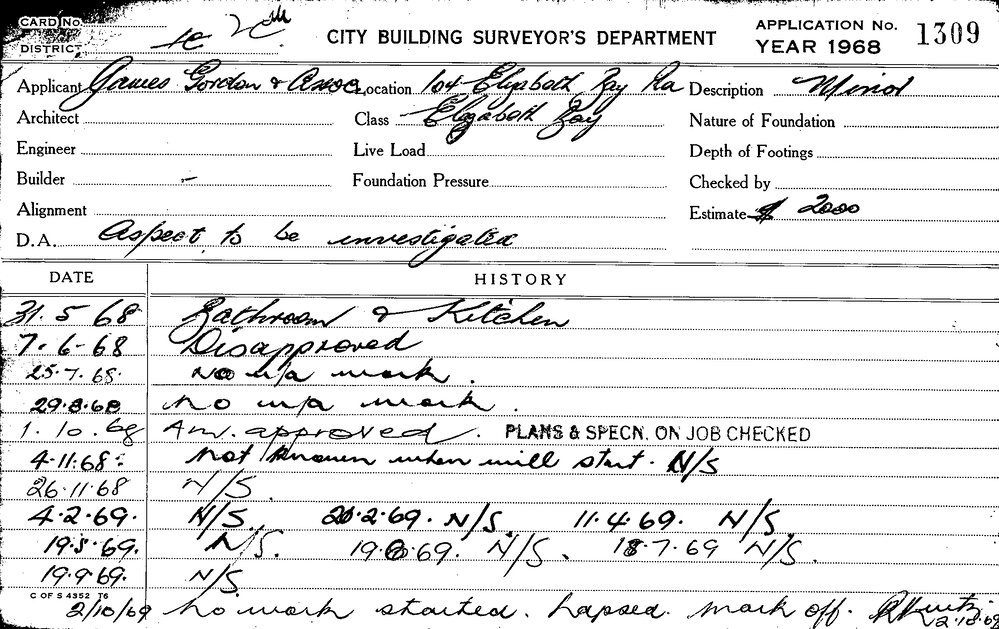 CARD No.
DISTRICT
CITY BUILDING SURVEYOR'S DEPARTMENT
APPLICATION No. 1309
YEAR 1968
Applicant James Gordon & Assoc. Location 104 Elizabeth Bay Rd Description Minor
Architect Class Elizabeth Bay Nature of Foundation
Engineer Live Load Depth of Footings
Builder - Foundation Pressure Checked by
Alignment Estimate $ 2000
D.A. Aspect to be investigated
DATE HISTORY
31.5.68 Bathroom & Kitchen
7.6-68 Disapproved
25.7.68. No u/a work.
29.8.68 No u/a work.
1.10.68 Am. approved. PLANS & SPECN. ON JOB CHECKED
4.11.68. Not known when will start. N/S
26.11.68 N/S.
4.2.69. N/S. 20.2.69. N/S. 11.4.69. N/S
19.5.69. N/S. 19.6.69. N/S. 18.7.69 N/S.
19.9.69. N/S.
C OF S 4352 T6
2/10/69 No work started. Lapsed. Mark off. 2.10.69